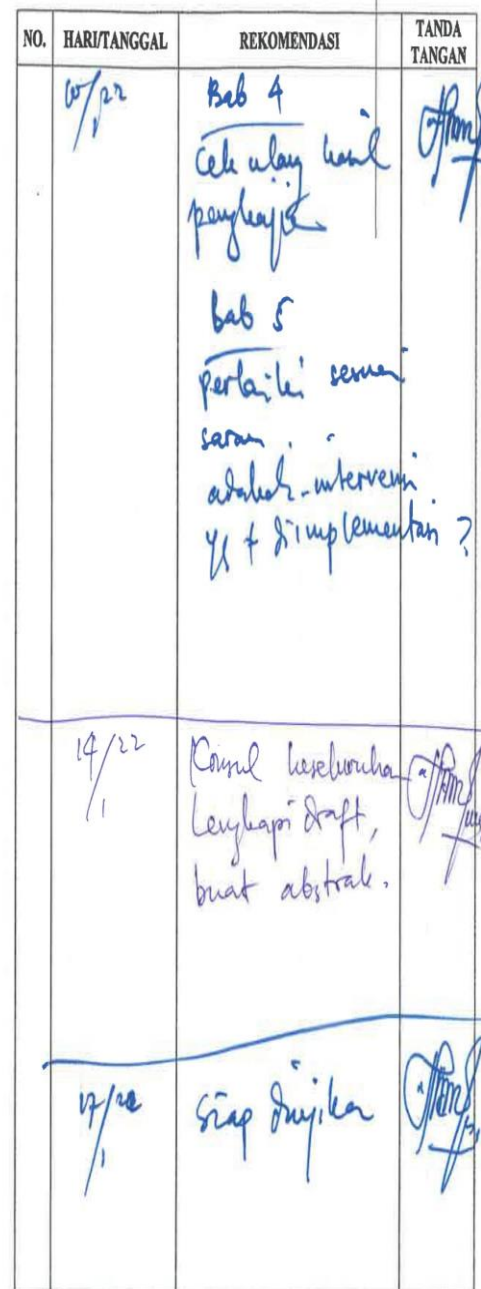 NO. HARI/TANGGAL REKOMENDASI TANDA TANGAN
Bab 4
Cek ulang hasil
pengkajian
Bab 5
perbaiki sesuai
saran.
adakah intervensi
yg diimplementasi ?
14/22
1
Konsul keseluruhan
Lengkapi draft,
buat abstrak.
17/22
1
Siap diujikan